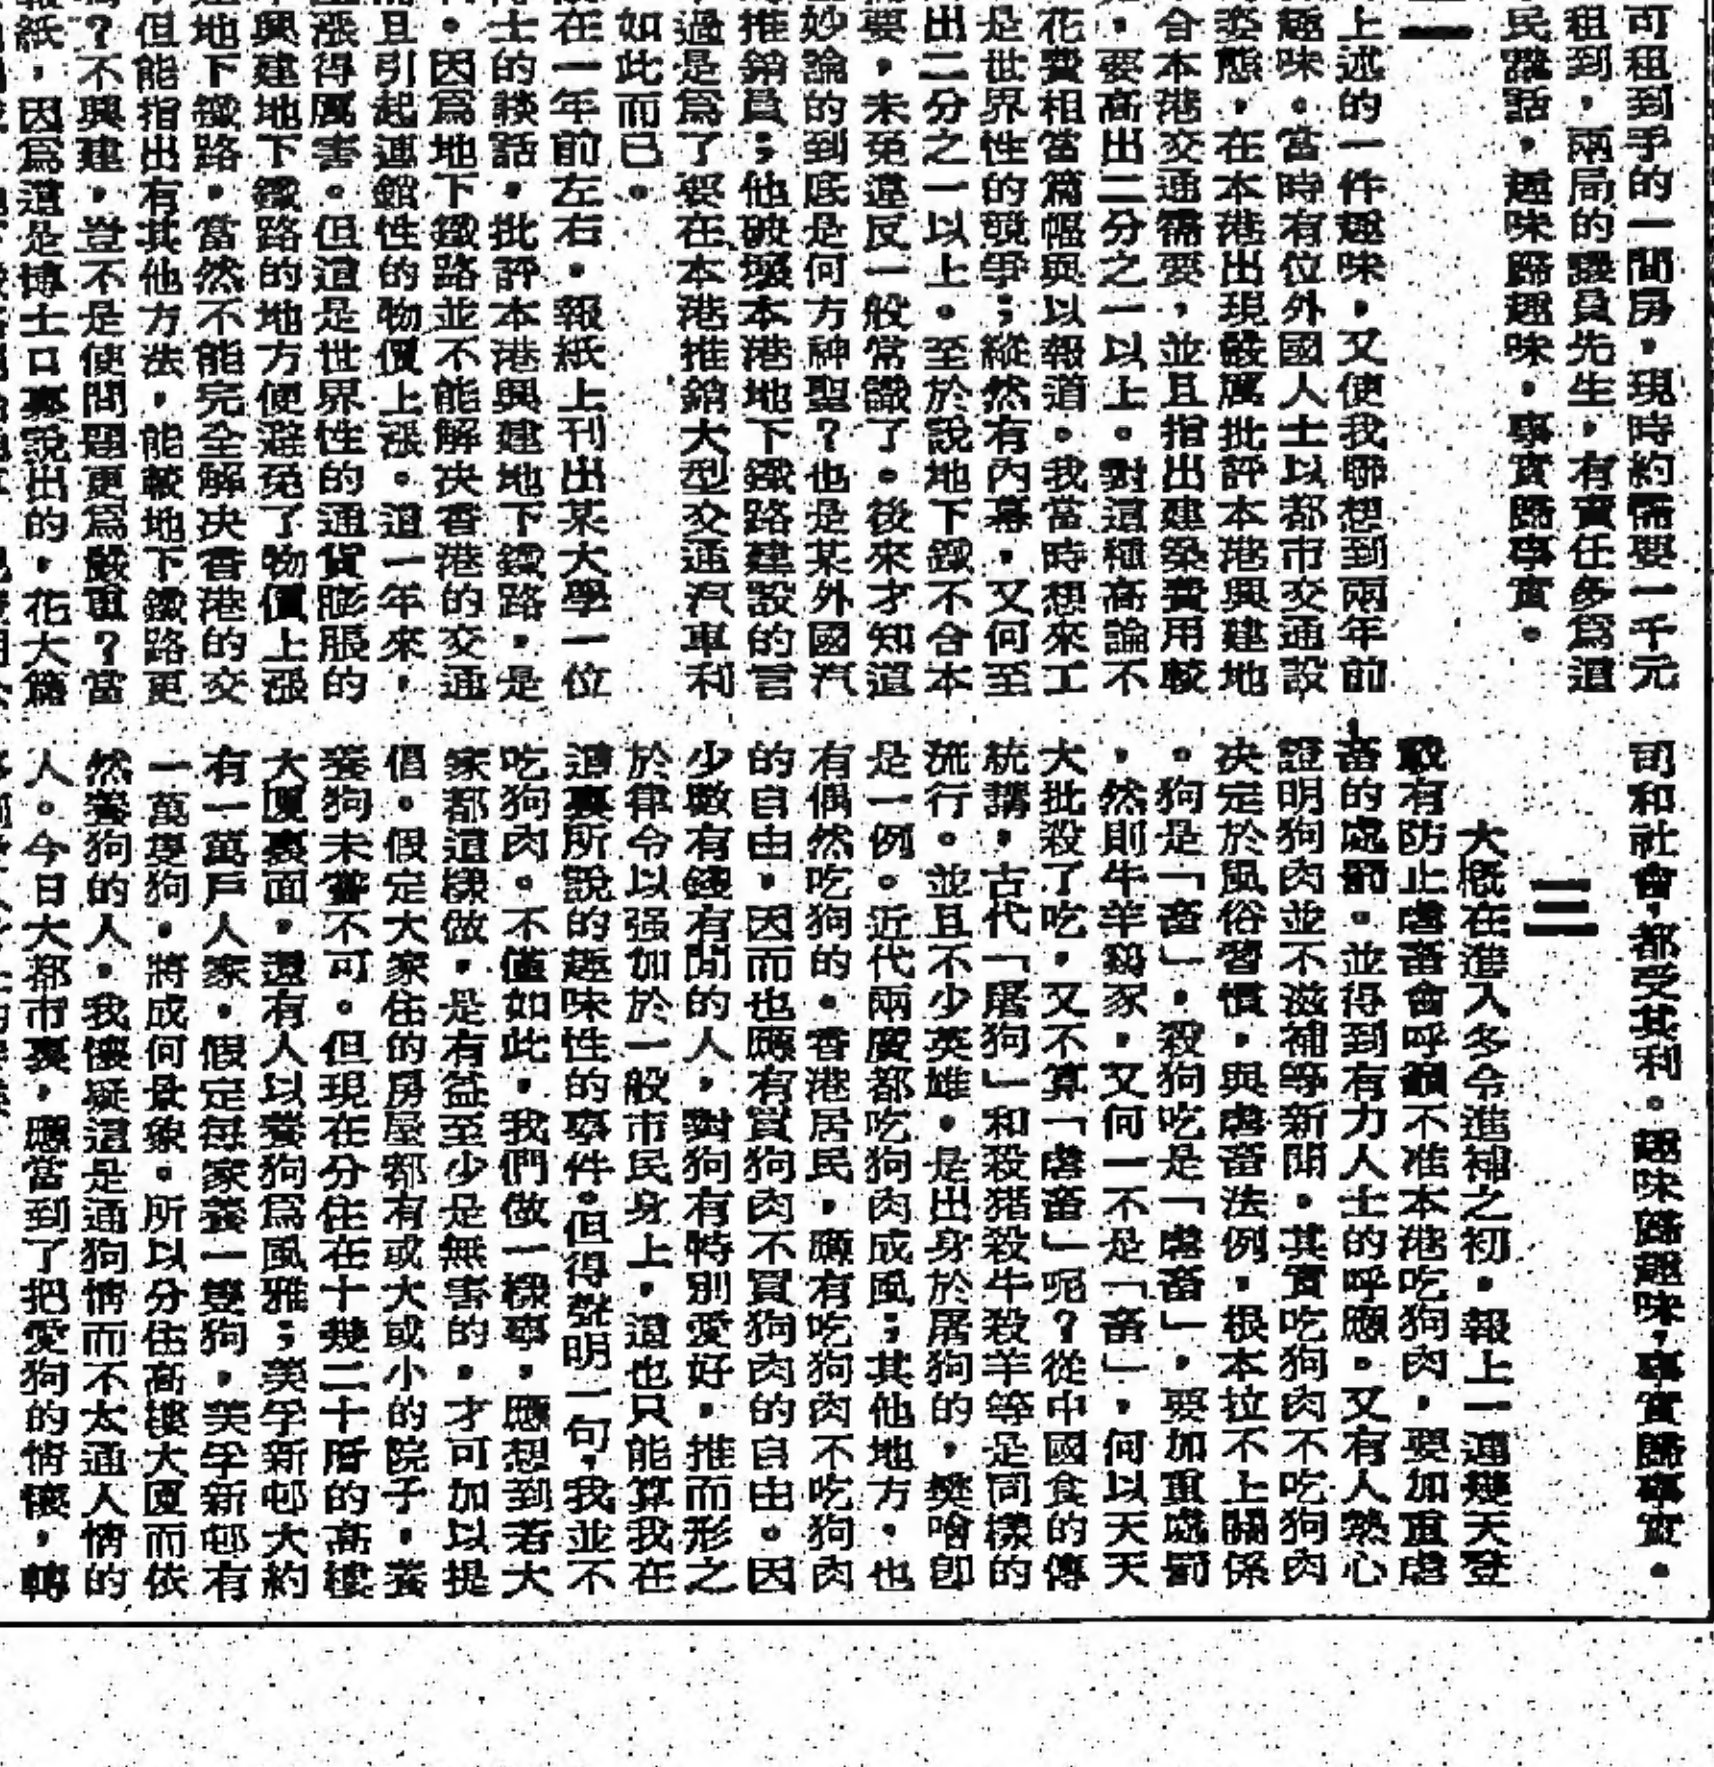 可租到手的一間房，現時約需要一千元
租到，兩局的議員先生，有責任多爲這
民講話，趣味歸趣味，事實歸事實。
上述的一件趣味，又使我聯想到兩年前
趣味。當時有位外國人士以都市交通設
姿態，在本港出現嚴厲批評本港興建地
合本港交通需要，並且指出建築費用較
，要高出二分之一以上。對這種高論不
花費相當篇幅與以報道。我當時想來工
是世界性的競爭；縱然有內幕，又何至
出二分之一以上。至於說地下鐵不合本
要，未免違反一般常識了。後來才知道
妙論的到底是何方神聖？也是某外國汽
推銷員；他破壞本港地下鐵路建設的言
過是爲了要在本港推銷大型交通汽車利
如此而已。
在一年前左右，報紙上刊出某大學一位
士的談話，批評本港興建地下鐵路，是
。因爲地下鐵路並不能解決香港的交通
且引起連鎖性的物價上漲。這一年來，
漲得厲害。但這是世界性的通貨膨脹的
興建地下鐵路的地方便避免了物價上漲
地下鐵路，當然不能完全解決香港的交
但能指出有其他方法，能較地下鐵路更
？不興建，豈不是使問題更爲嚴重？當
紙，因爲這是博士口裏說出的，花大篇
司和社會，都受其利。趣味歸趣味，事實歸事實。
三
大概在進入冬令進補之初，報上一連幾天登
載有防止虐畜會呼籲不准本港吃狗肉，要加重虐
畜的處罰。並得到有力人士的呼應。又有人熱心
證明狗肉並不滋補等新聞。其實吃狗肉不吃狗肉
決定於風俗習慣，與虐畜法例，根本拉不上關係
。狗是「畜」，殺狗吃是「虐畜」，要加重處罰
，然則牛羊鷄家，又何一不是「畜」，何以天天
大批殺了吃，又不算「虐畜」呢？從中國食的傳
統講，古代「屠狗」和殺猪殺牛殺羊等是同樣的
流行。並且不少英雄，是出身於屠狗的，樊噲卽
是一例。近代兩廣都吃狗肉成風；其他地方，也
有偶然吃狗的。香港居民，應有吃狗肉不吃狗肉
的自由，因而也應有買狗肉不買狗肉的自由。因
少數有錢有閒的人，對狗有特別愛好，推而形之
於律令以强加於一般市民身上，這也只能算我在
這裏所說的趣味性的事件。但得聲明一句，我並不
吃狗肉。不僅如此，我們做一樣事，應想到若大
家都這樣做，是有益至少是無害的，才可加以提
倡。假定大家住的房屋都有或大或小的院子，養
養狗未嘗不可。但現在分住在十幾二十層的高樓
大厦裏面，還有人以養狗爲風雅；美孚新邨大約
有一萬戶人家，假定每家養一隻狗，美孚新邨有
一萬隻狗，將成何景象。所以分住高樓大厦而依
然養狗的人，我懷疑這是通狗情而不太通人情的
人。今日大都市裏，應當到了把愛狗的情懷，轉